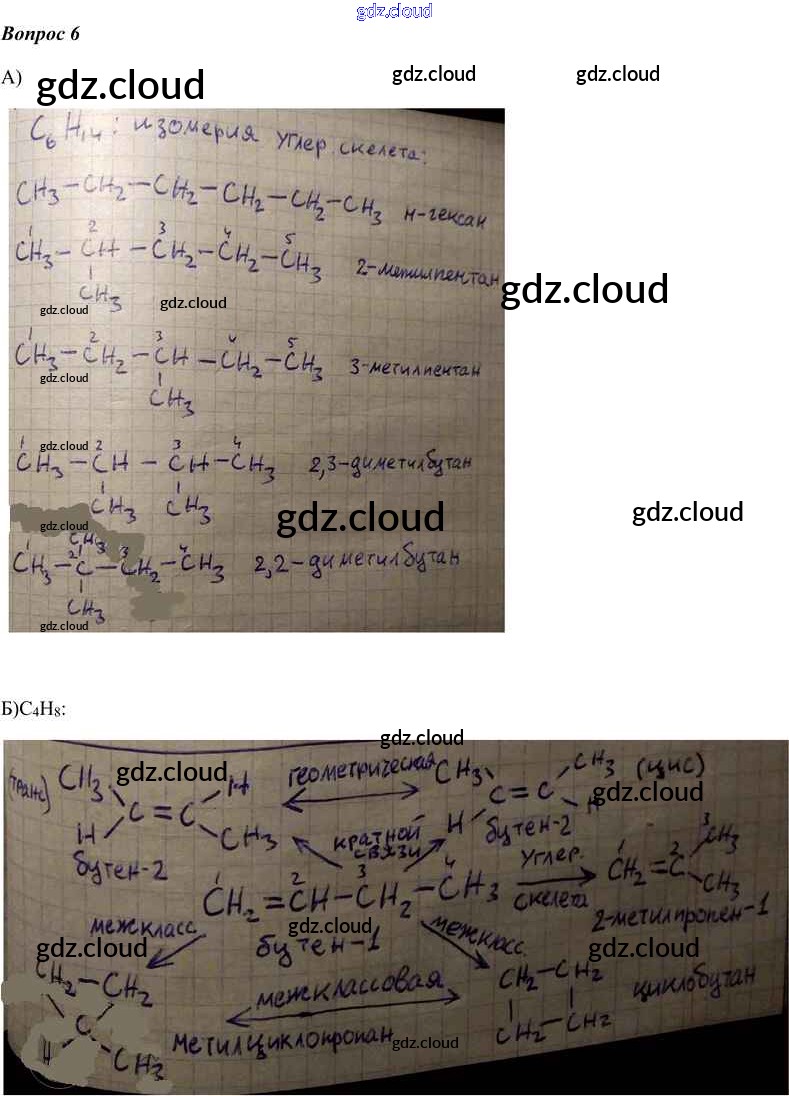 gdz.cloud
Вопрос 6
А)
gdz.cloud gdz.cloud gdz.cloud
C6H14: изомерия углер. скелета:
CH3-CH2-CH2-CH2-CH2-CH3 н-гексан
1 2 3 4 5
CH3-CH-CH2-CH2-CH3 2-метилпентан
CH3
gdz.cloud gdz.cloud gdz.cloud
1 2 3 4 5
CH3-CH2-CH-CH2-CH3 3-метилпентан
gdz.cloud
CH3
gdz.cloud
1 2 3 4
CH3-CH-CH-CH3 2,3-диметилбутан
CH3 CH3
gdz.cloud gdz.cloud gdz.cloud
CH3
1 2 3 4
CH3-C-CH2-CH3 2,2-диметилбутан
CH3
gdz.cloud
Б)C4H8:
gdz.cloud
(транс) CH3 H геометрическая CH3 CH3 (цис)
gdz.cloud gdz.cloud
C=C C=C
H CH3 H H
бутен-2 кратной связи бутен-2
1 2 3 4
CH2=CH-CH2-CH3 углер. скелета
1 2 3
CH2=C CH3
CH3
2-метилпропен-1
межкласс. gdz.cloud межкласс.
бутен-1
gdz.cloud gdz.cloud
CH2-CH2 межклассовая CH2-CH2 циклобутан
C CH2-CH2
H CH3 метилциклопропан gdz.cloud